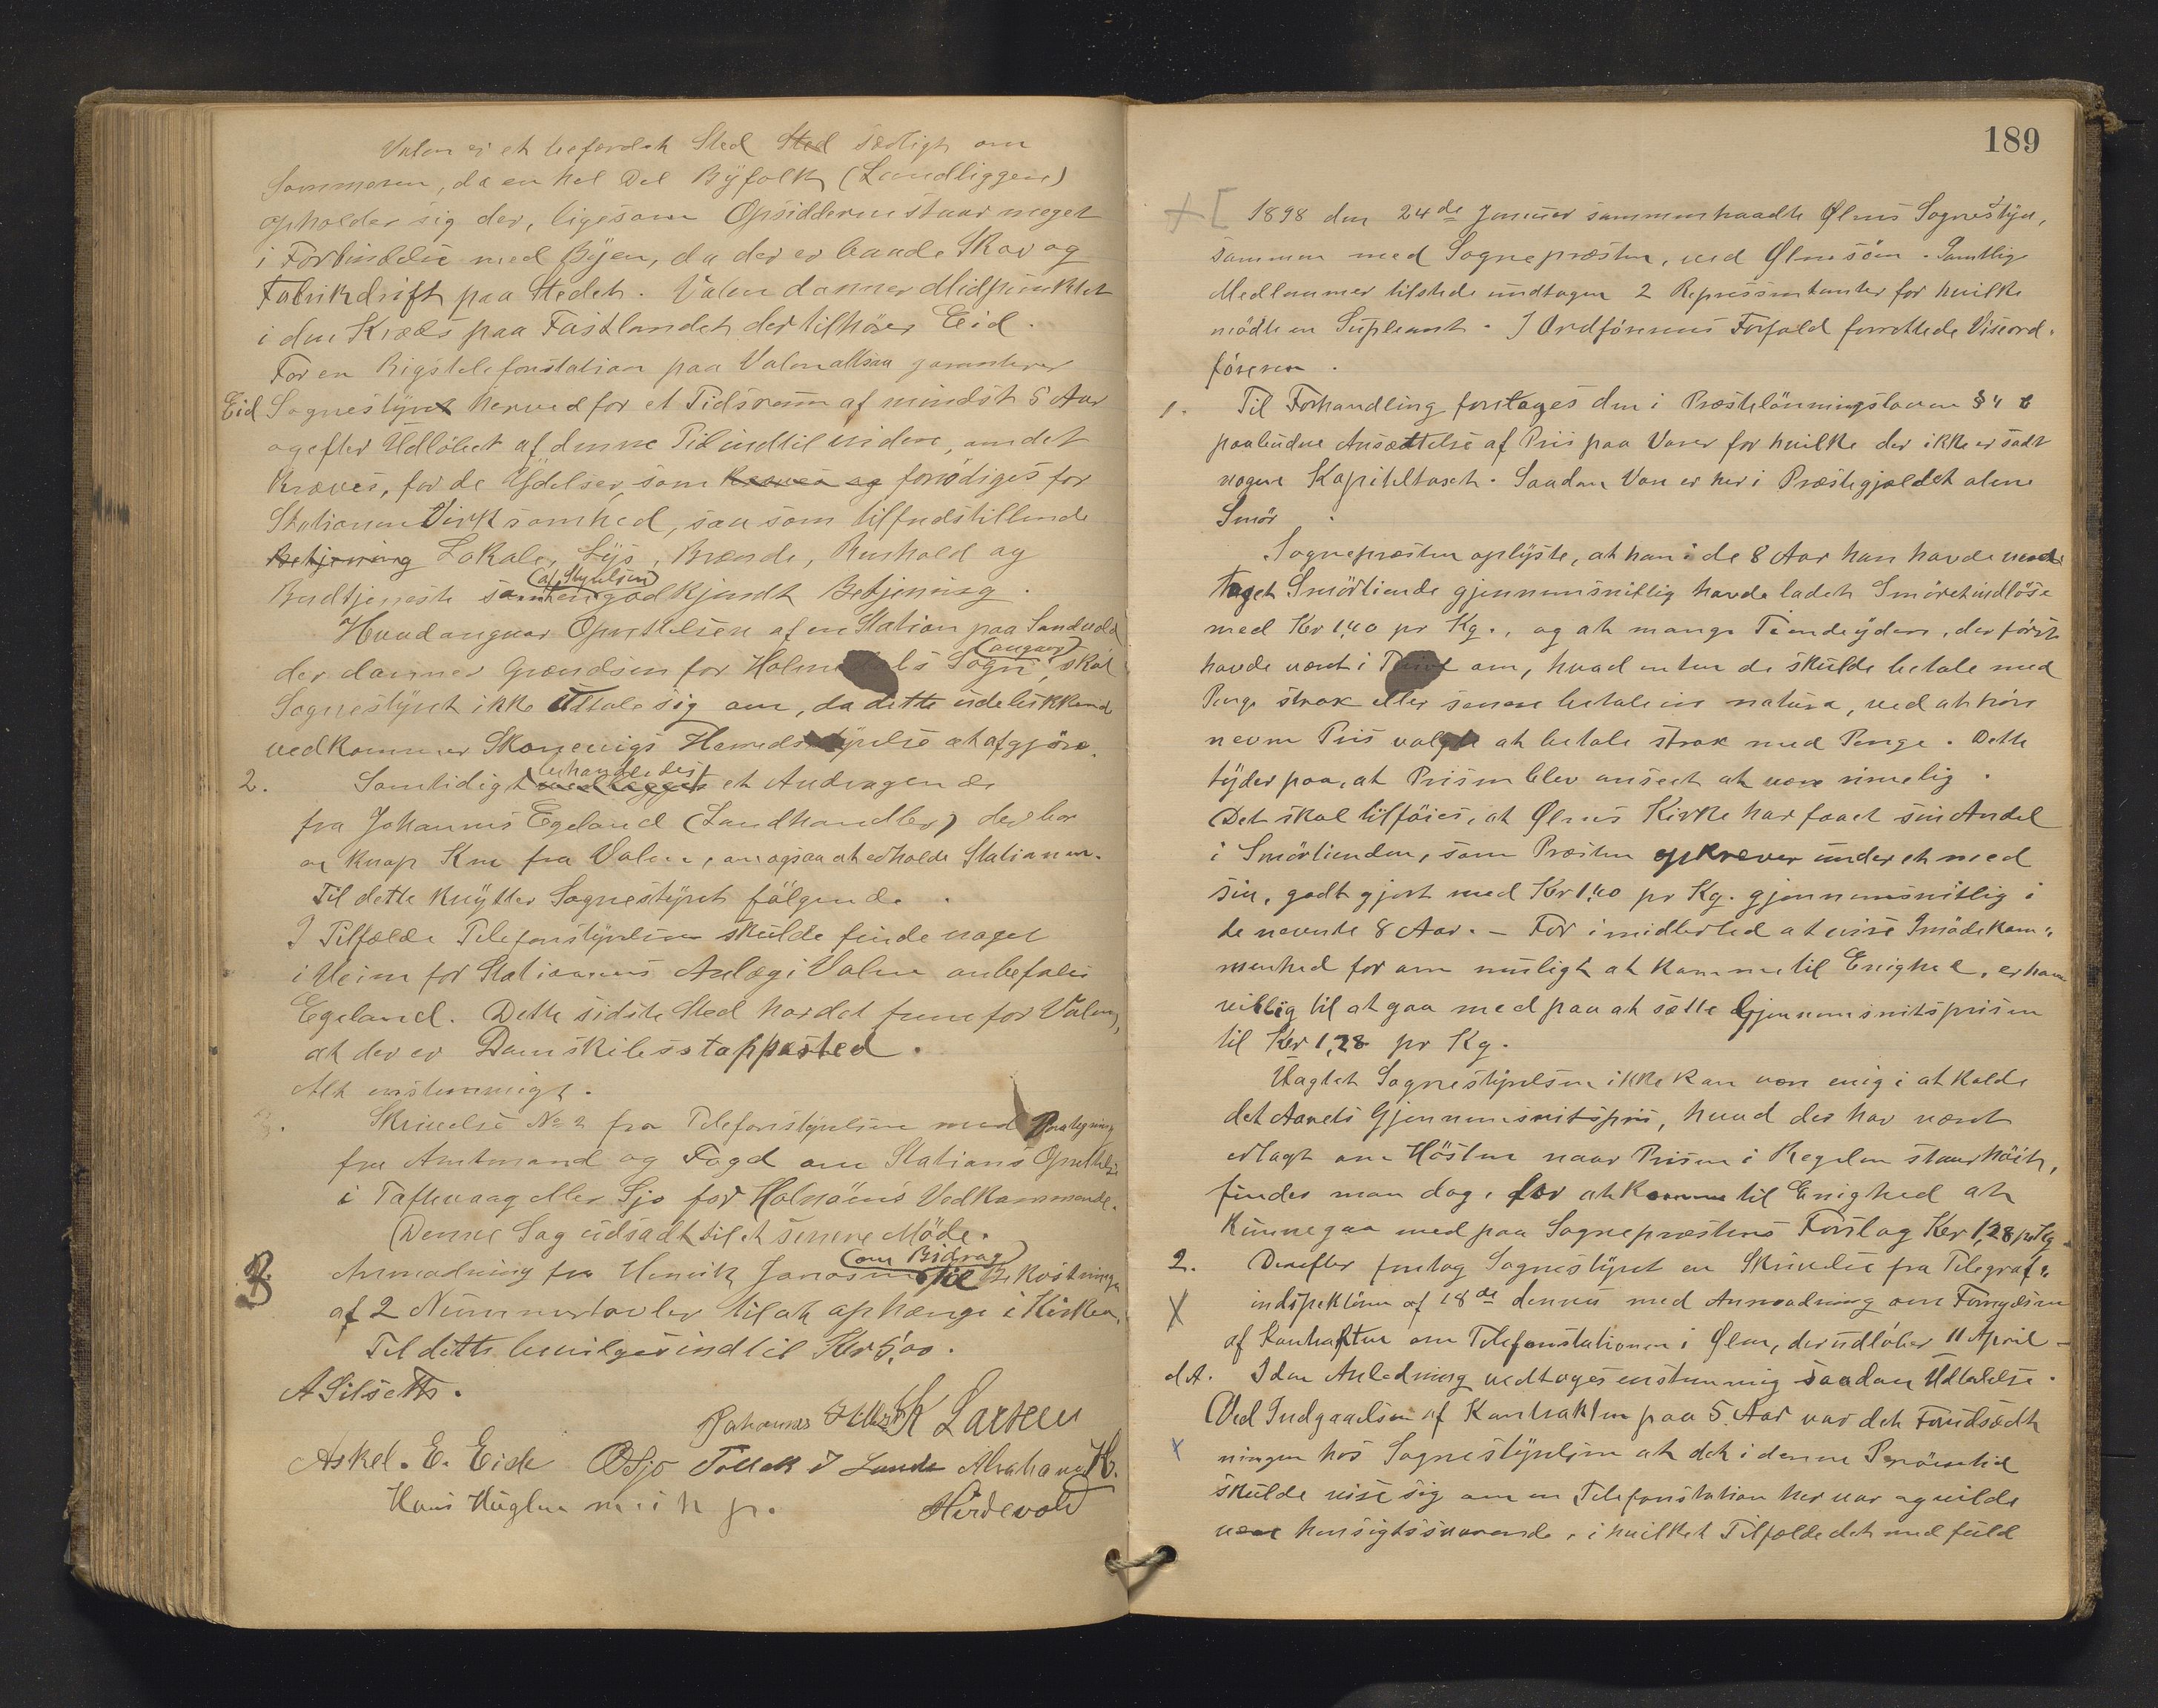 Valen er et befærdet Sted Sted særligt om
Sommeren, da en hel Del Byfolk (Landliggere)
opholder sig der, ligesom Opsidderne staar meget
i Forbindelse med Byen, da der er baade Skov og
Fabrikdrift paa Stedet. Valen danner Midtpunktet
i den Kreds paa Fastlandet der tilhører Eid.
For en Rigstelefonstation paa Valen altsaa garanterer
Eid Sognestyret herved for et Tidsrum af mindst 5 Aar
og efter Udløbet af denne Tid indtil videre, om det
kræves, for de Ydelser som kræves og fornødiges for
Stationens Virksomhed, saasom tilfredstillende
Betjening Lokale, Lys, Brænde, Renhold og
(af Styrelsen)
Budtjeneste samt en godkjendt Betjening.
Hvad angaar Oprettelsen af en Station paa Sandvold
(angaar)
der danner Grændsen for Holmedals Sogn, skal
Sognestyret ikke udtale sig om, da dette udelukkende
vedkommer Skonevigs Herredsstyrelse at afgjøre.
behandledes
2. Samtidigt et Andragende
fra Johannes Egeland (Landhandler) der bor
en knap Km fra Valen, om ogsaa at erholde Stationen.
Til dette knytter Sognestyret følgende.
I Tilfælde Telefonstyrelsen skulde finde noget
i Veien for Stationens Anlæg i Valen anbefales
Egeland. Dette sidste Sted har det frem for Valen,
at der er Dampskibsstoppested.
Alt enstemmigt.
Skrivelse No 2 fra Telefonstyrelsen med Paategning
fra Amtmand og Fogd om Stations Oprettelse
i Taftevaag eller Sjo for Halsnøens Vedkommende.
(Denne Sag udsadt til et senere Møde.
(om Bidrag)
3. Anmodning fra Henrik til Bekostningen
af 2 Nummertavler til at ophænge i Kirken.
Til dette bevilges indtil Kr 5,00.
A Silseth.
Johannes K Larsen
Askel. E. Eide O Sjo Tollak T Lande Abraham K.
Hans Huglen m i h p. Hirdevold
189
[ 1898 den 24de Januar sammenhaadte Ølens Sognestyre,
sammen med Sognepræsten, ved Ølensøen. Samtlige
Medlemmer tilstede undtagen 2 Repræsentanter for hvilke
mødte en Supleant. I Ordførerens Forfald forrettede Viseord-
føreren.
1. Til Forhandling foretages den i Præstelønningsloven § 4
paabudne Ansættelse af Pris paa Varer for hvilke der ikke er sadt
nogen Kapiteltaxt. Saadan Vare er her i Præstegjældet alene
Smør.
Sognepræsten oplyste, at han i de 8 Aar han havde mod-
taget Smørtiende gjennemsnitlig havde ladet Smøret indløse
med Kr 1,40 pr Kg., og at mange Tiendeydere, der først
havde været i Tvivl om, hvad enten de skulde betale med
Penge strax eller senere betale in natura, ved at høre
nevnte Pris valgte at betale strax med Penge. Dette
tyder paa, at Prisen blev anseet at være rimelig.
(Det skal tilføies, at Ølens Kirke har faaet sin Andel
i Smørtienden, som Præsten opkræver under et med
sin, godtgjort med Kr 1,40 pr Kg. gjennemsnitlig i
de nevnte 8 Aar. – For imidlertid at vise Imødekom-
menhed for om muligt at komme til Enighed, er han
villig til at gaa med paa at sætte Gjennemsnitsprisen
til Kr 1,28 pr Kg.
Uagtet Sognestyrelsen ikke kan være enig i at kalde
det Aarets Gjennemsnitspris, hvad der har været
erlagt om Høsten naar Prisen i Regelen staar høit,
finder man dog, for at komme til Enighed at
kunne gaa med paa Sognepræstens Forslag Kr 1,28 pr Kg.
2. Derefter foretog Sognestyret en Skrivelse fra Telegraf-
inspektøren af 18de dennes med Anmodning om Fornyelsen
af Kontrakten om Telefonstationen i Ølen, der udløber 11 April
d.A. I den Anledning vedtoges enstemmig saadan Udtalelse.
(Ved Indgaaelsen af Kontrakten paa 5 Aar var det Forudsæt-
ningen hos Sognestyrelsen at det i denne Prøvetid
skulde vise sig om en Telefonstation her var og vilde
være hensigtssvarende, i hvilket Tilfælde det med fuld